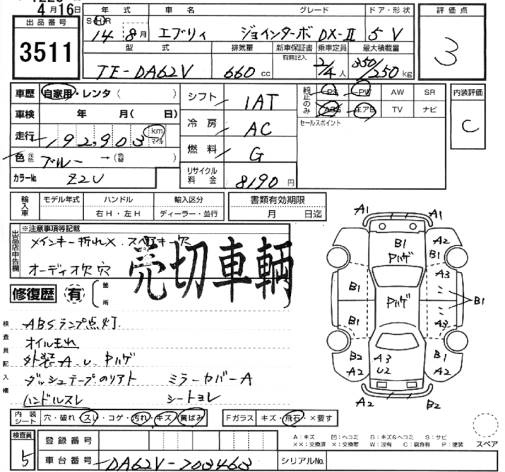 4月16日
出品番号
3511
年 式
車 名
グレード
ドア・形状
評価点
S・H・R
14年 8月
エブリィ
ジョインターボ DX-Ⅱ
5V
3
型 式
排気量
新車保証書
有効記入
乗車定員
最大積載量
TE-DA62V
660 cc
2/4人
350/250kg
車歴
自家用・レンタ( )
シフト
1AT
純正のみ
PS
PW
AW
SR
ABS
エアB
TV
ナビ
内装評価
C
車検
年 月( 日)
冷房
AC
セールスポイント
走行
192,903
km
マイル
燃料
G
色
ブルー
→(色替)
カラーNo
Z2U
リサイクル料金
8190円
輸入車
モデル年式
ハンドル
輸入区分
書類有効期限
右H・左H
ディーラー・並行
月 日迄
出品店申告欄
※注意事項等記載
メインキー折れ×
オーディオ欠 穴
売切車輌
修復歴
有
箇所
検査員記入欄
ABSランプ点灯
オイルもれ
外装A.U.サハゲ
ダッシュテープのリアト
ミラーカバーA
ハンドルスレ
シートヨレ
内装シート
穴・破れ・スレ・コゲ・汚れ・キズ・黄ばみ
Fガラス
キズ・飛石・×要す
検査員
5
登録番号
車台番号
DA62V-203463
シリアルNo.
A1
A1
B1
サハゲ
A2
A2
A3
B1
B1
サハゲ
B1
B1
B2
A3
U2
A3
A2
A2
B2
スペア
A:キズ
U:凹ヘコミ
B:キズ&ヘコミ
S:サビ
××:交換済
×:要交換
W:波有
C:腐食有
P:塗装